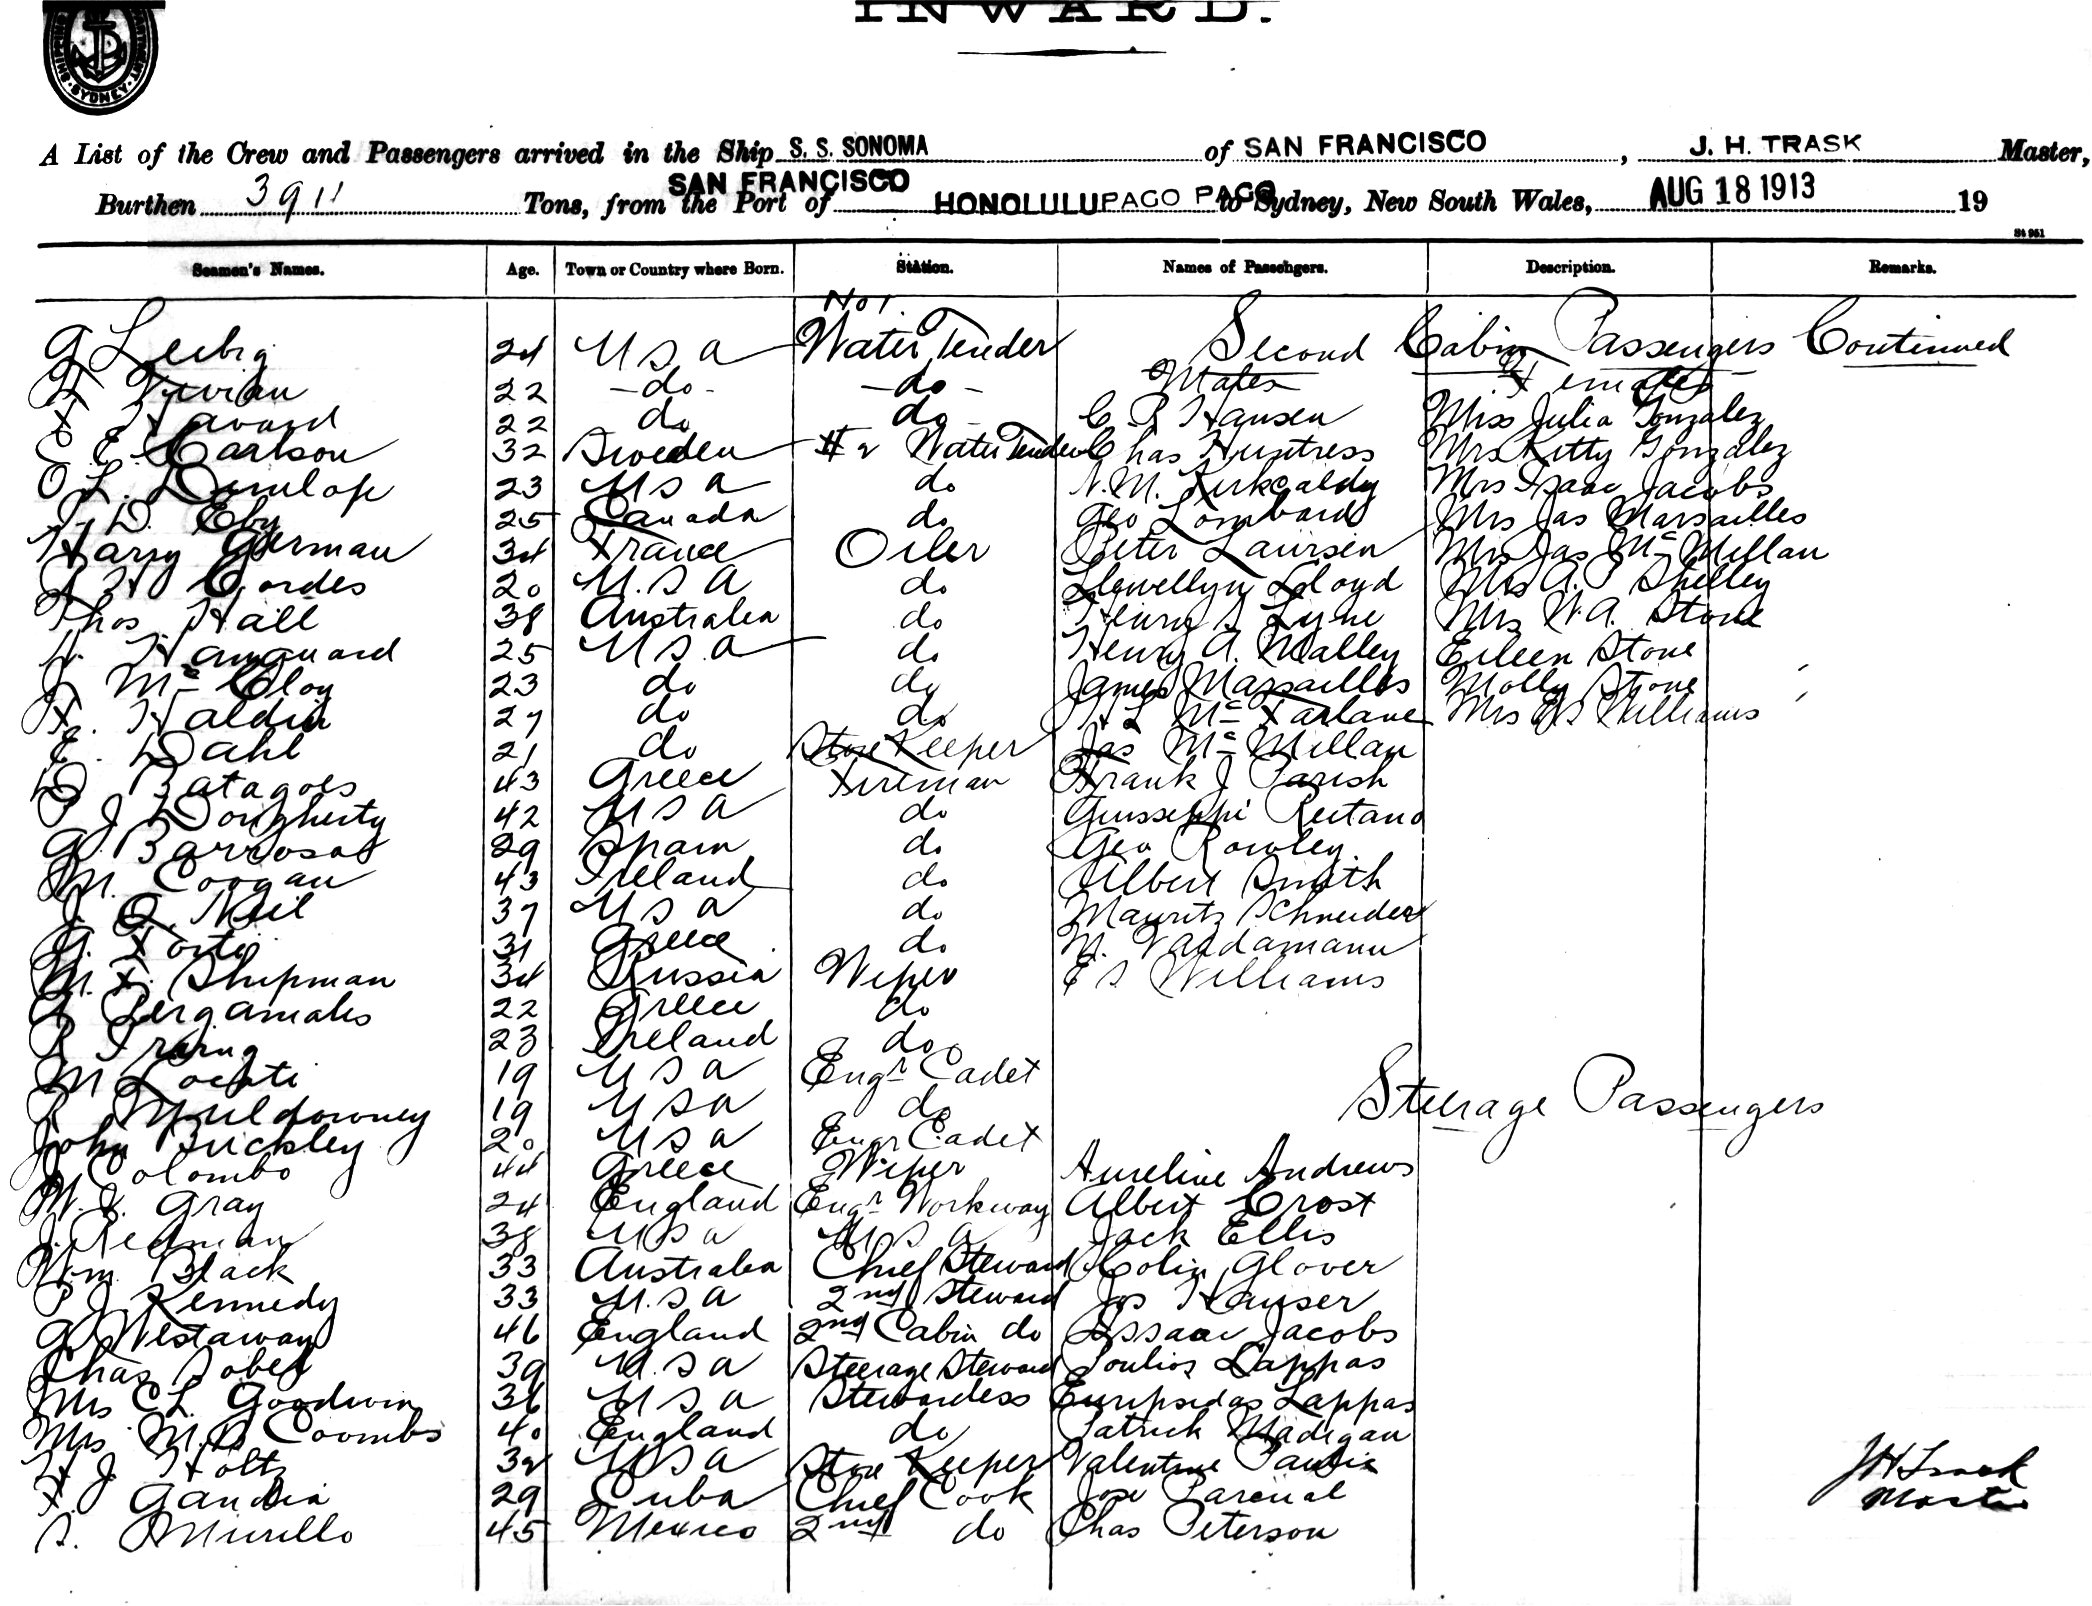 INWARD.
SYDNEY
A List of the Crew and Passengers arrived in the Ship S. S. SONOMA of SAN FRANCISCO, J. H. TRASK Master,
Burthen 3911 Tons, from the Port of SAN FRANCISCO HONOLULU PAGO PAGO to Sydney, New South Wales, AUG 18 1913 19
St 961
Seamen's Names. Age. Town or Country where Born. Station. Names of Passengers. Description. Remarks.
No 1
G Leibig 24 U S A Water Tender Second Cabin Passengers Continued
H Vivian 22 - do - - do - Males Females
22 do do C. P. Hansen Miss Julia Gonzalez
C E Carlson 32 Sweden # 2 Water Tender Chas Huntress Mrs Kitty Gonzalez
O L. Dunlop 23 U S A do N. M. Kirkcaldy Mrs Isaac Jacobs
D. Eby 25 Canada do Geo Lombard Mrs Jas Marsailles
Harry German 34 France Oiler Peter Laursen Mrs Jas Mc Millan
A H Cordes 20 U. S A do Llewellyn Lloyd Mrs A. P Shelley
Thos. Hall 38 Australia do Henry S Lyne Mrs W. A. Stone
25 U S. A do Henry A. Malley Eileen Stone
J Mc Cloy 23 do do James Marsailles Molly Stone
H. Haldin 27 do do H L Mc Farlane Mrs E S Williams
E. Dahl 21 do Store Keeper Jas Mc Millan
D Batagoes 43 Greece Fireman Frank J Parish
P J Dougherty 42 U S A do Giusseppi Reitano
G. Barrosa 29 Spain do Geo Rowley
M. Coogan 43 Ireland do Albert Smith
J. O. Neil 37 U S A do Mauritz Schneider
G. Forti 31 Greece do M. Vardamann
M. F. Shipman 34 Russia Wiper E S Williams
G Pergamales 22 Greece do
23 Ireland do
M Locati 19 U S A Engr Cadet
R Muldowney 19 U S A do Steerage Passengers
John Buckley 20 U S A Engr Cadet
J Colombo 44 Greece Wiper Aureline Andrews
W. J. Gray 24 England Engr Workway Albert Crost
J. Redman 38 U S A U S A Jack Ellis
Wm. Black 33 Australia Chief Steward Colin Glover
P J Kennedy 33 U. S A 2nd Steward Jos Hauser
G. Westaway 46 England 2nd Cabin do Issaac Jacobs
Chas Sobel 39 U. S A Steerage Steward Poulios Lappas
Mrs C L. Goodwin 36 U S A Stewardess Euripsidas Lappas
Mrs M. A. Coombs 40 England do Patrick Madigan
H J Holtz 32 U S A Store Keeper Valentine
F. Gandia 29 Cuba Chief Cook Jose Parcual
S. Murillo 45 Mexico 2nd do Chas Peterson
J H Trask
Master